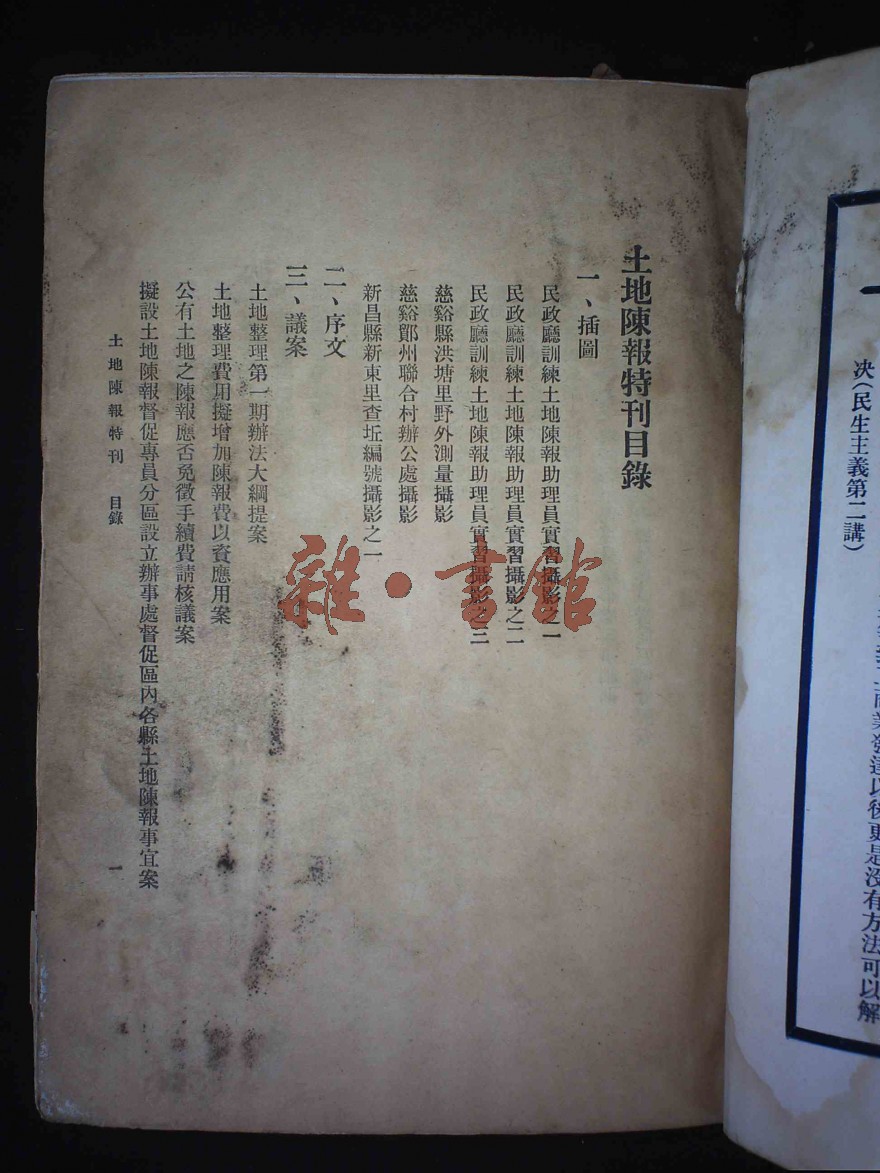 土地陳報特刊目錄
一、插圖
民政廳訓練土地陳報助理員實習攝影之一
民政廳訓練土地陳報助理員實習攝影之二
民政廳訓練土地陳報助理員實習攝影之三
慈谿縣洪塘里野外測量攝影
慈谿鄞州聯合村辦公處攝影
新昌縣新東里查坵編號攝影之一
二、序文
三、議案
土地整理第一期辦法大綱提案
土地整理費用擬增加陳報費以資應用案
公有土地之陳報應否免徵手續費請核議案
擬設土地陳報督促專員分區設立辦事處督促區內各縣土地陳報事宜案
土地陳報特刊 目錄 一
雜·書館
業發達以後更是沒有方法可以解
決(民生主義第二講)